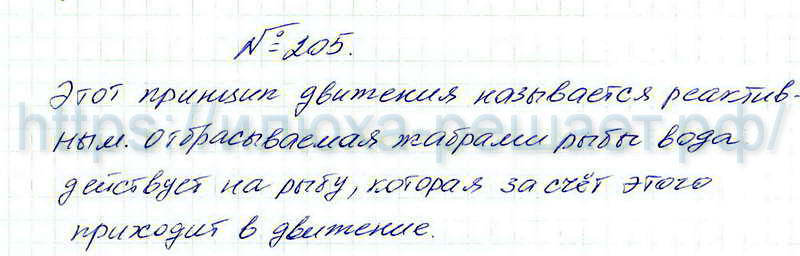 № 205.
Этот принцип движения называется реактив-
ным. Отбрасываемая жабрами рыбы вода
https://илюха-решает.рф/
действует на рыбу, которая за счёт этого
приходит в движение.